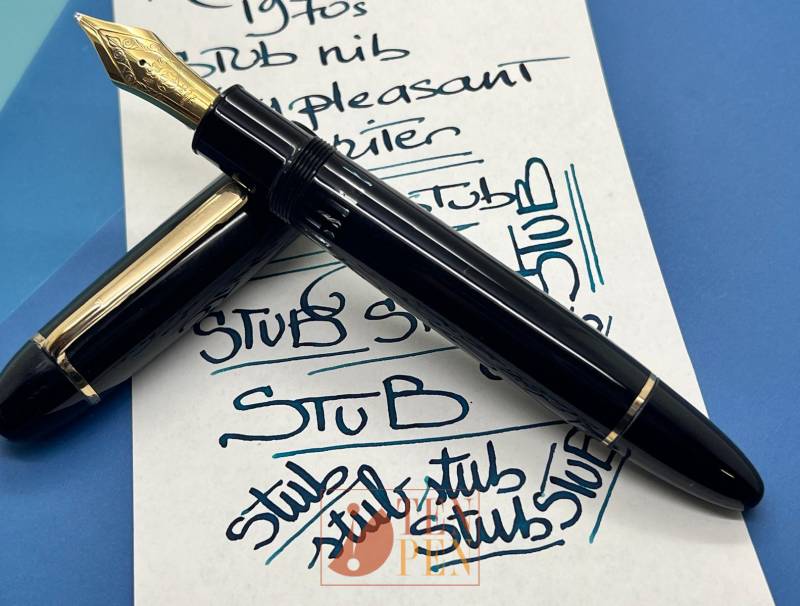 1970s
Stub nib
pleasant
writer
Stub
STUB
STUB
STUB
stub stub STUB
stub Stub
TEN
PEN